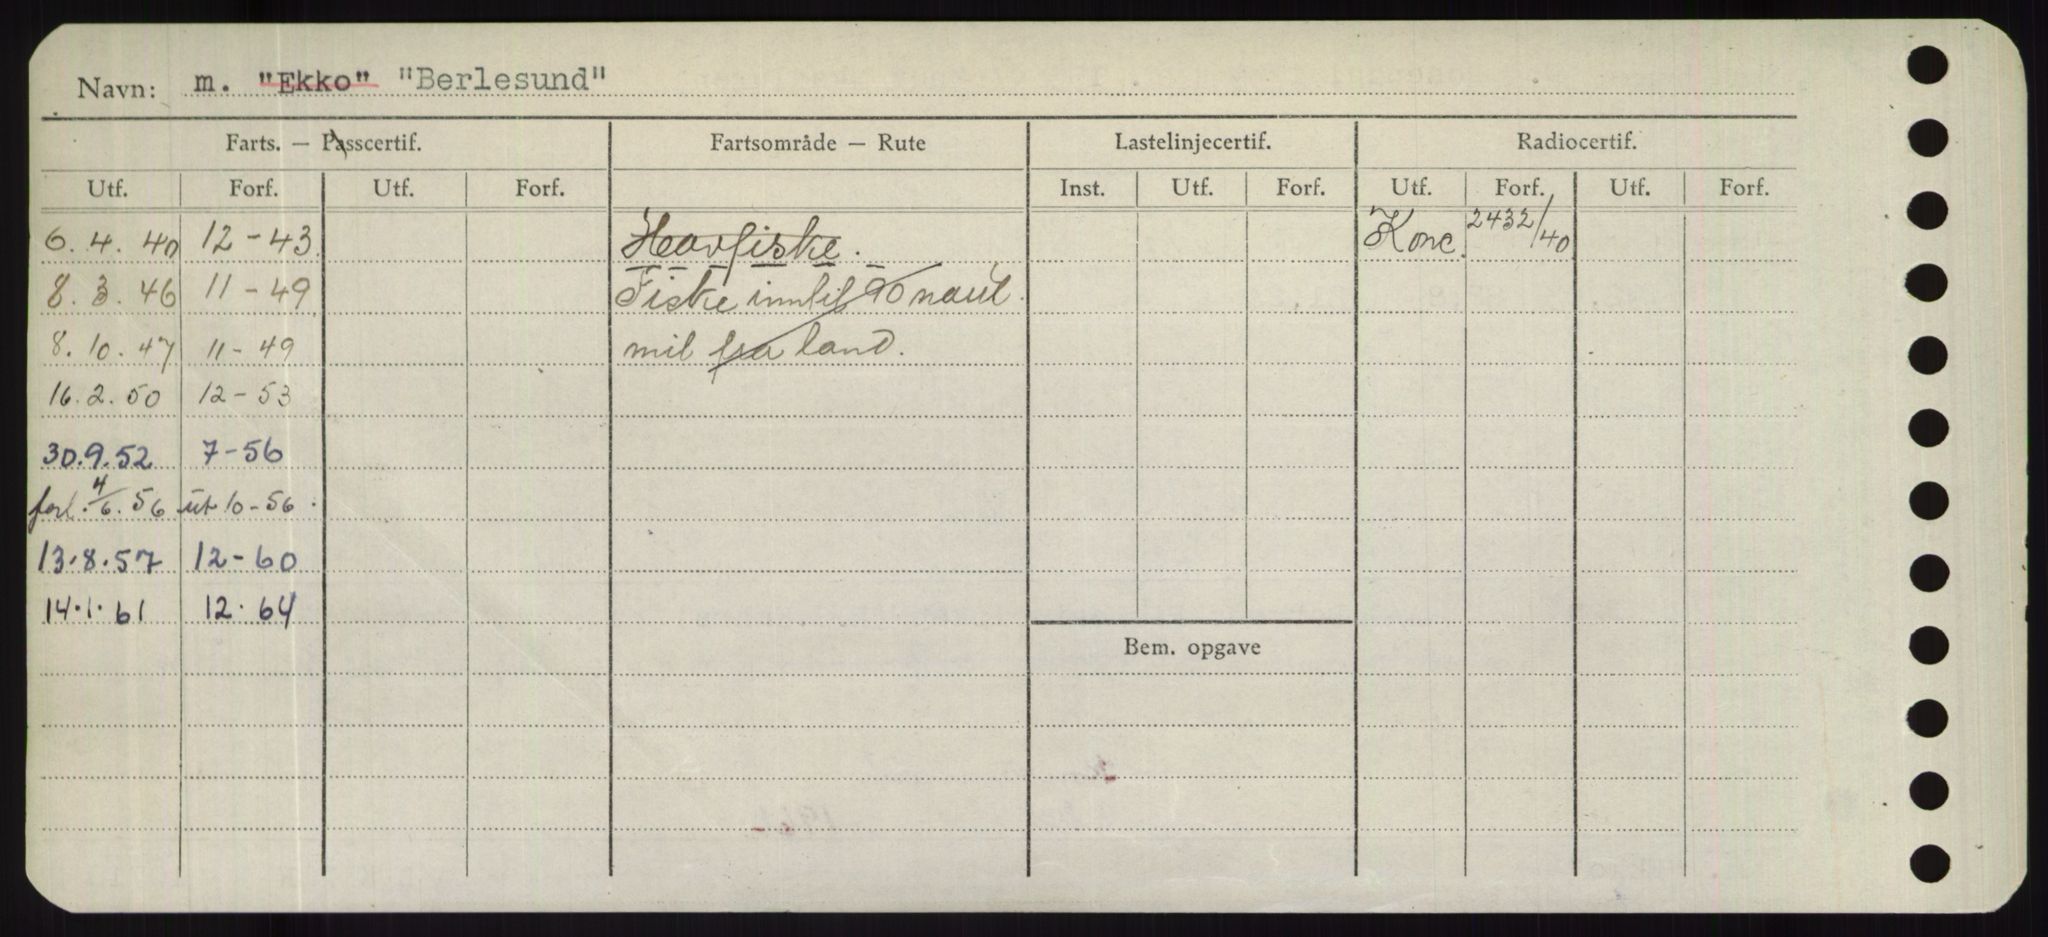 Navn: m. "Ekko" "Berlesund"
Farts. — Passcertif. Fartsområde — Rute Lastelinjecertif. Radiocertif.
Utf. Forf. Utf. Forf. Inst. Utf. Forf. Utf. Forf. Utf. Forf.
6. 4. 40 12-43 Havfiske. Konc. 2432/40
8. 3. 46 11-49 Fiske inntil 90 naut.
8. 10. 47 11-49 mil fra land.
16. 2. 50 12-53
30. 9. 52 7-56
forl. 4/6. 56 ut 10-56.
13. 8. 57 12-60
14. 1. 61 12. 64
Bem. opgave